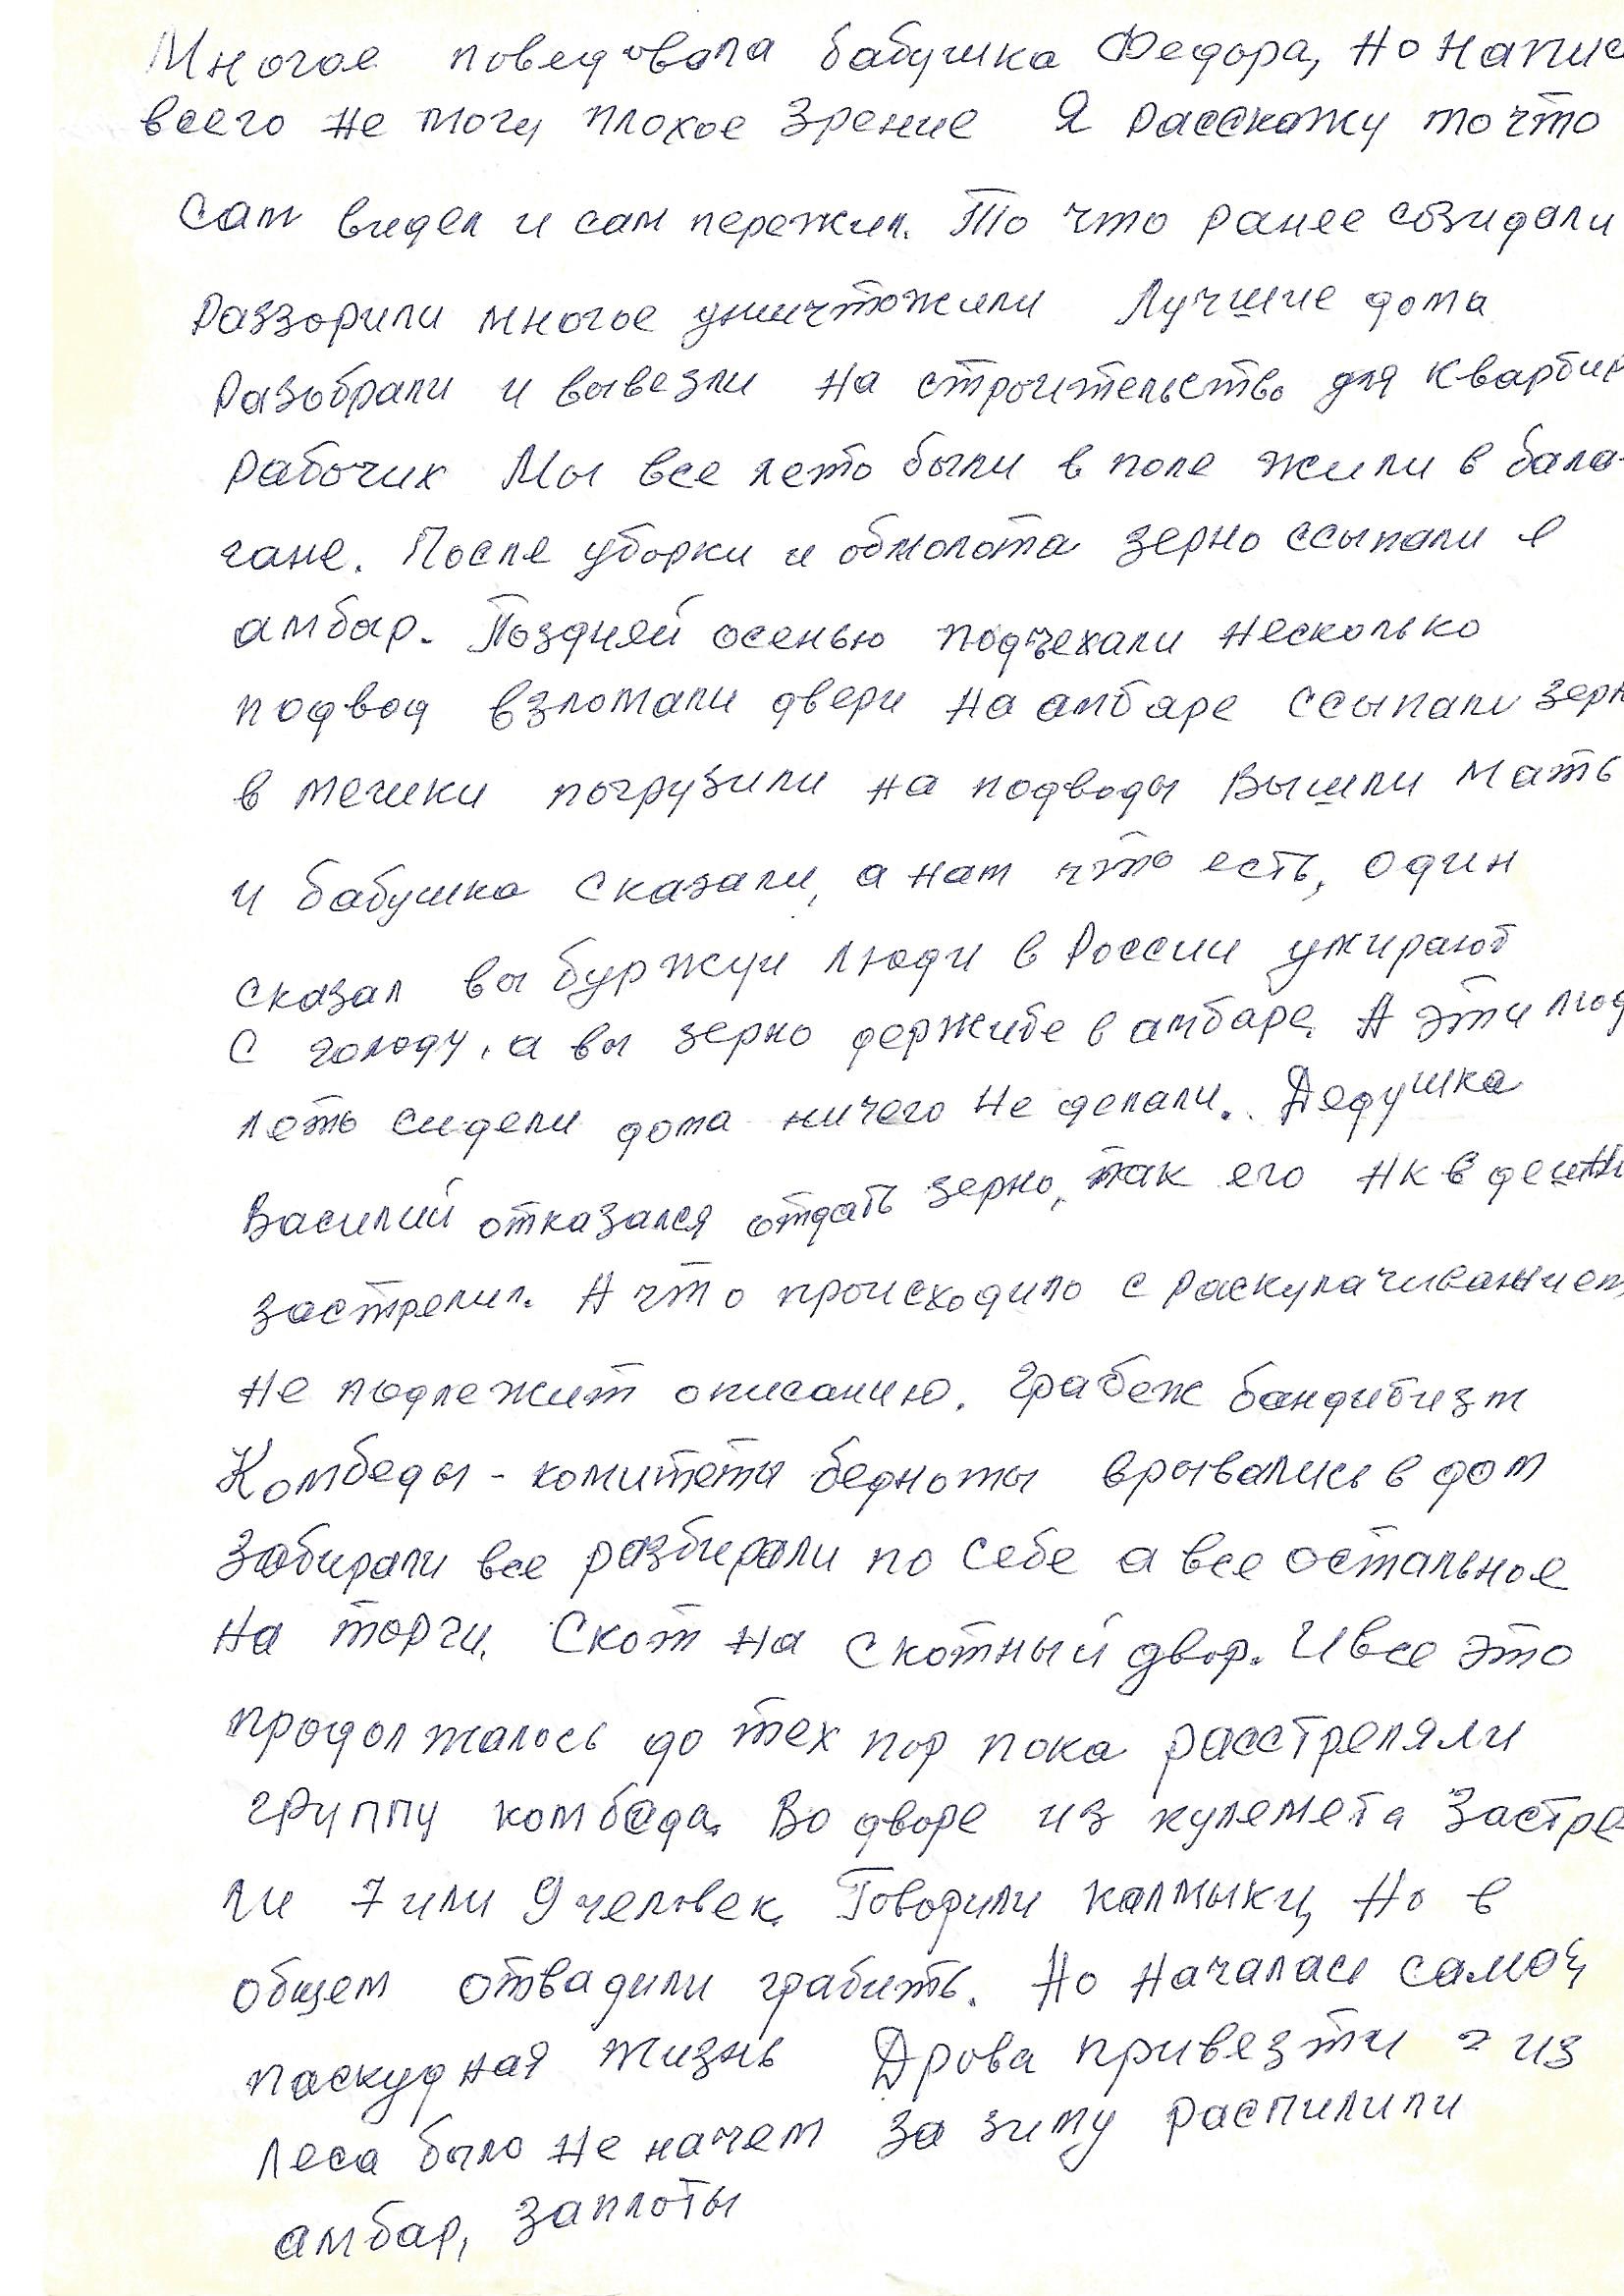 Многое поведовала бабушка Федора, но напис
всего не могу плохое зрение Я расскажу то что
сам видел и сам пережил. То что ранее созидали
раззорили многое уничтожили Лучшие дома
разобрали и вывезли на строительство для кварбир
рабочих Мы все лето были в поле жили в бала-
гане. После уборки и обмолота зерно ссыпали в
амбар. Поздней осенью подъехали несколько
подвод взломали двери на амбаре ссыпали зерн
в мешки погрузили на подводы Вышли мать
и бабушка сказали, а нам что есть, один
сказал вы буржуи люди в России умирают
с голоду, а вы зерно держите в амбаре. А эти люд
лето сидели дома ничего не делали. Дедушка
Василий отказался отдать зерно, так его нкв
застрелил. А что происходило с раскулачиванием,
не подлежит описанию. грабеж бандитизм
Комбеды - комитеты бедноты врывались в дом
Забирали все разбирали по себе а все остальное
на торги. Скот на скотный двор. И все это
продолжалось до тех пор пока расстреляли
группу комбеда. Во дворе из пулемета застре
ли 7 или 9 человек. Говорили калмыки, Но в
общем отвадили грабить. Но началась самая
паскудная жизнь Дрова привезти из
леса было не начем За зиму распилили
амбар, заплоты